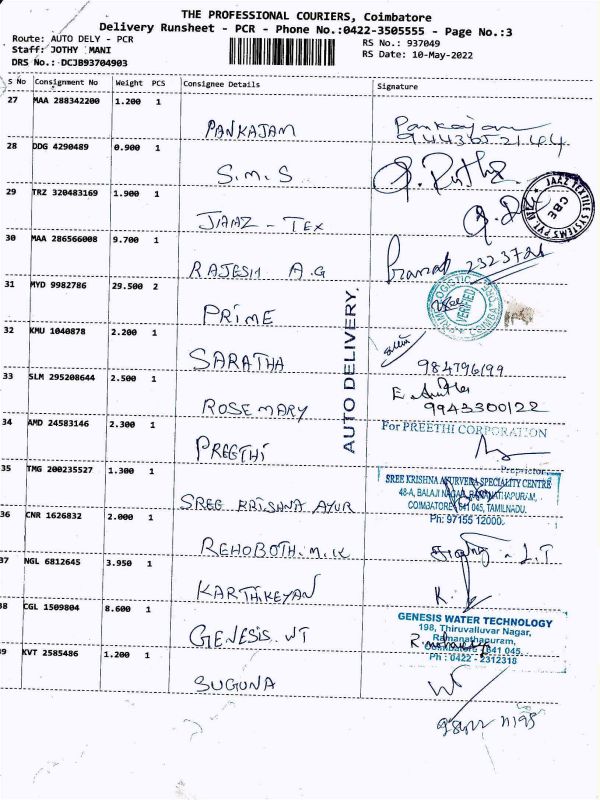 THE PROFESSIONAL COURIERS, Coimbatore
Delivery Runsheet - PCR - Phone No.:0422-3505555 - Page No.:3
Route: AUTO DELY - PCR
Staff: JOTHY MANI
DRS No.: DCJB93704903
RS No.: 937049
RS Date: 10-May-2022
S No Consignment No Weight PCS Consignee Details Signature
27 MAA 288342200 1.200 1 PANKAJAM Pankajam
28 DDG 4290489 0.900 1 S.M.S
29 TRZ 320483169 1.900 1 JAAZ - TEX
JAAZ TEXTILE SYSTEMS PVT LTD
CBE
30 MAA 286566008 9.700 1 RAJESH A.G
31 MYD 9982786 29.500 2 PRIME
VERIFIED
32 KMU 1040878 2.200 1 SARATHA
984796199
33 SLM 295208644 2.500 1 ROSEMARY
9943300122
AUTO DELIVERY.
34 AMD 24583146 2.300 1 PREETHI
For PREETHI CORPORATION
Proprietor
35 TMG 200235527 1.300 1 SREE KRISHNA AYUR
SREE KRISHNA AYURVEDA SPECIALITY CENTRE
48-A, BALAJI NAGAR, RAMANATHAPURAM,
COIMBATORE 641 045, TAMILNADU.
Ph: 97155 12000.
36 CNR 1626832 2.000 1 REHOBOTH.M.K
37 NGL 6812645 3.950 1 KARTHIKEYAN K.
38 CGL 1509804 8.600 1 GENESIS.WT
GENESIS WATER TECHNOLOGY
198, Thiruvalluvar Nagar,
Ramanathapuram,
Coimbatore 641 045.
Ph : 0422 - 2312318
39 KVT 2585486 1.200 1 SUGUNA